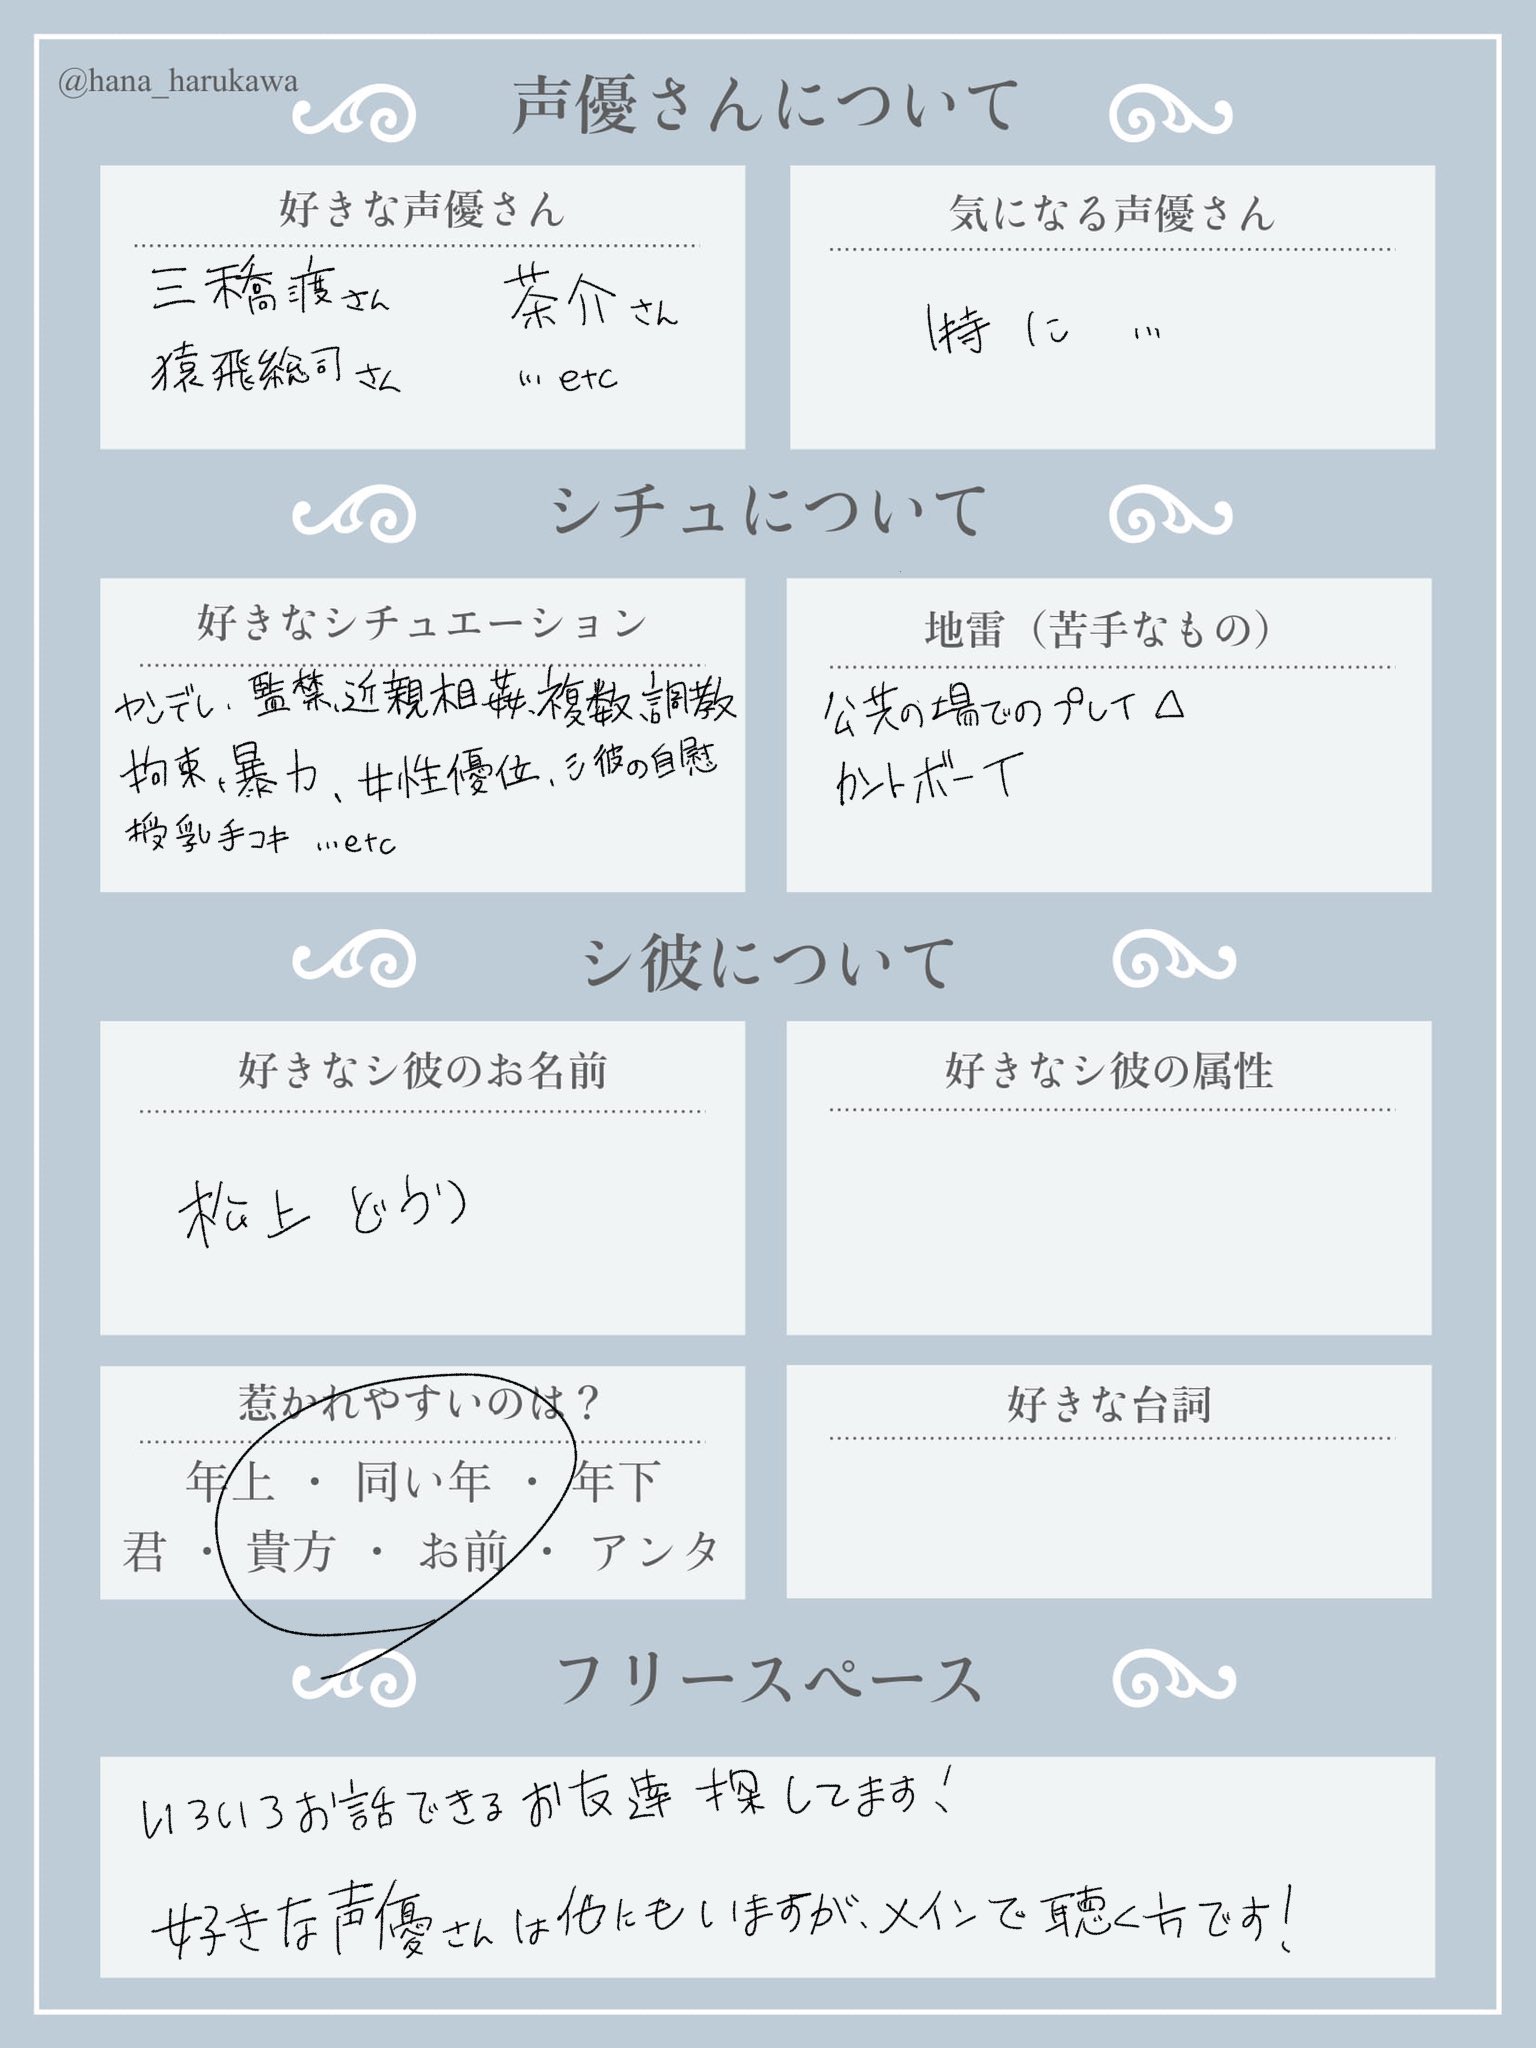 @hana_harukawa
声優さんについて
好きな声優さん
三橋渡さん 茶介さん
猿飛総司さん …etc
気になる声優さん
特に …
シチュについて
好きなシチュエーション
ヤンデレ、監禁、近親相姦、複数、調教
拘束、暴力、女性優位、シ彼の自慰
授乳手コキ …etc
地雷（苦手なもの）
公共の場でのプレイ △
カントボーイ
シ彼について
好きなシ彼のお名前
松上
好きなシ彼の属性
惹かれやすいのは？
年上 ・ 同い年 ・ 年下
君 ・ 貴方 ・ お前 ・ アンタ
好きな台詞
フリースペース
いろいろお話できるお友達 探してます！
好きな声優さんは他にもいますが、メインで聴く方です！